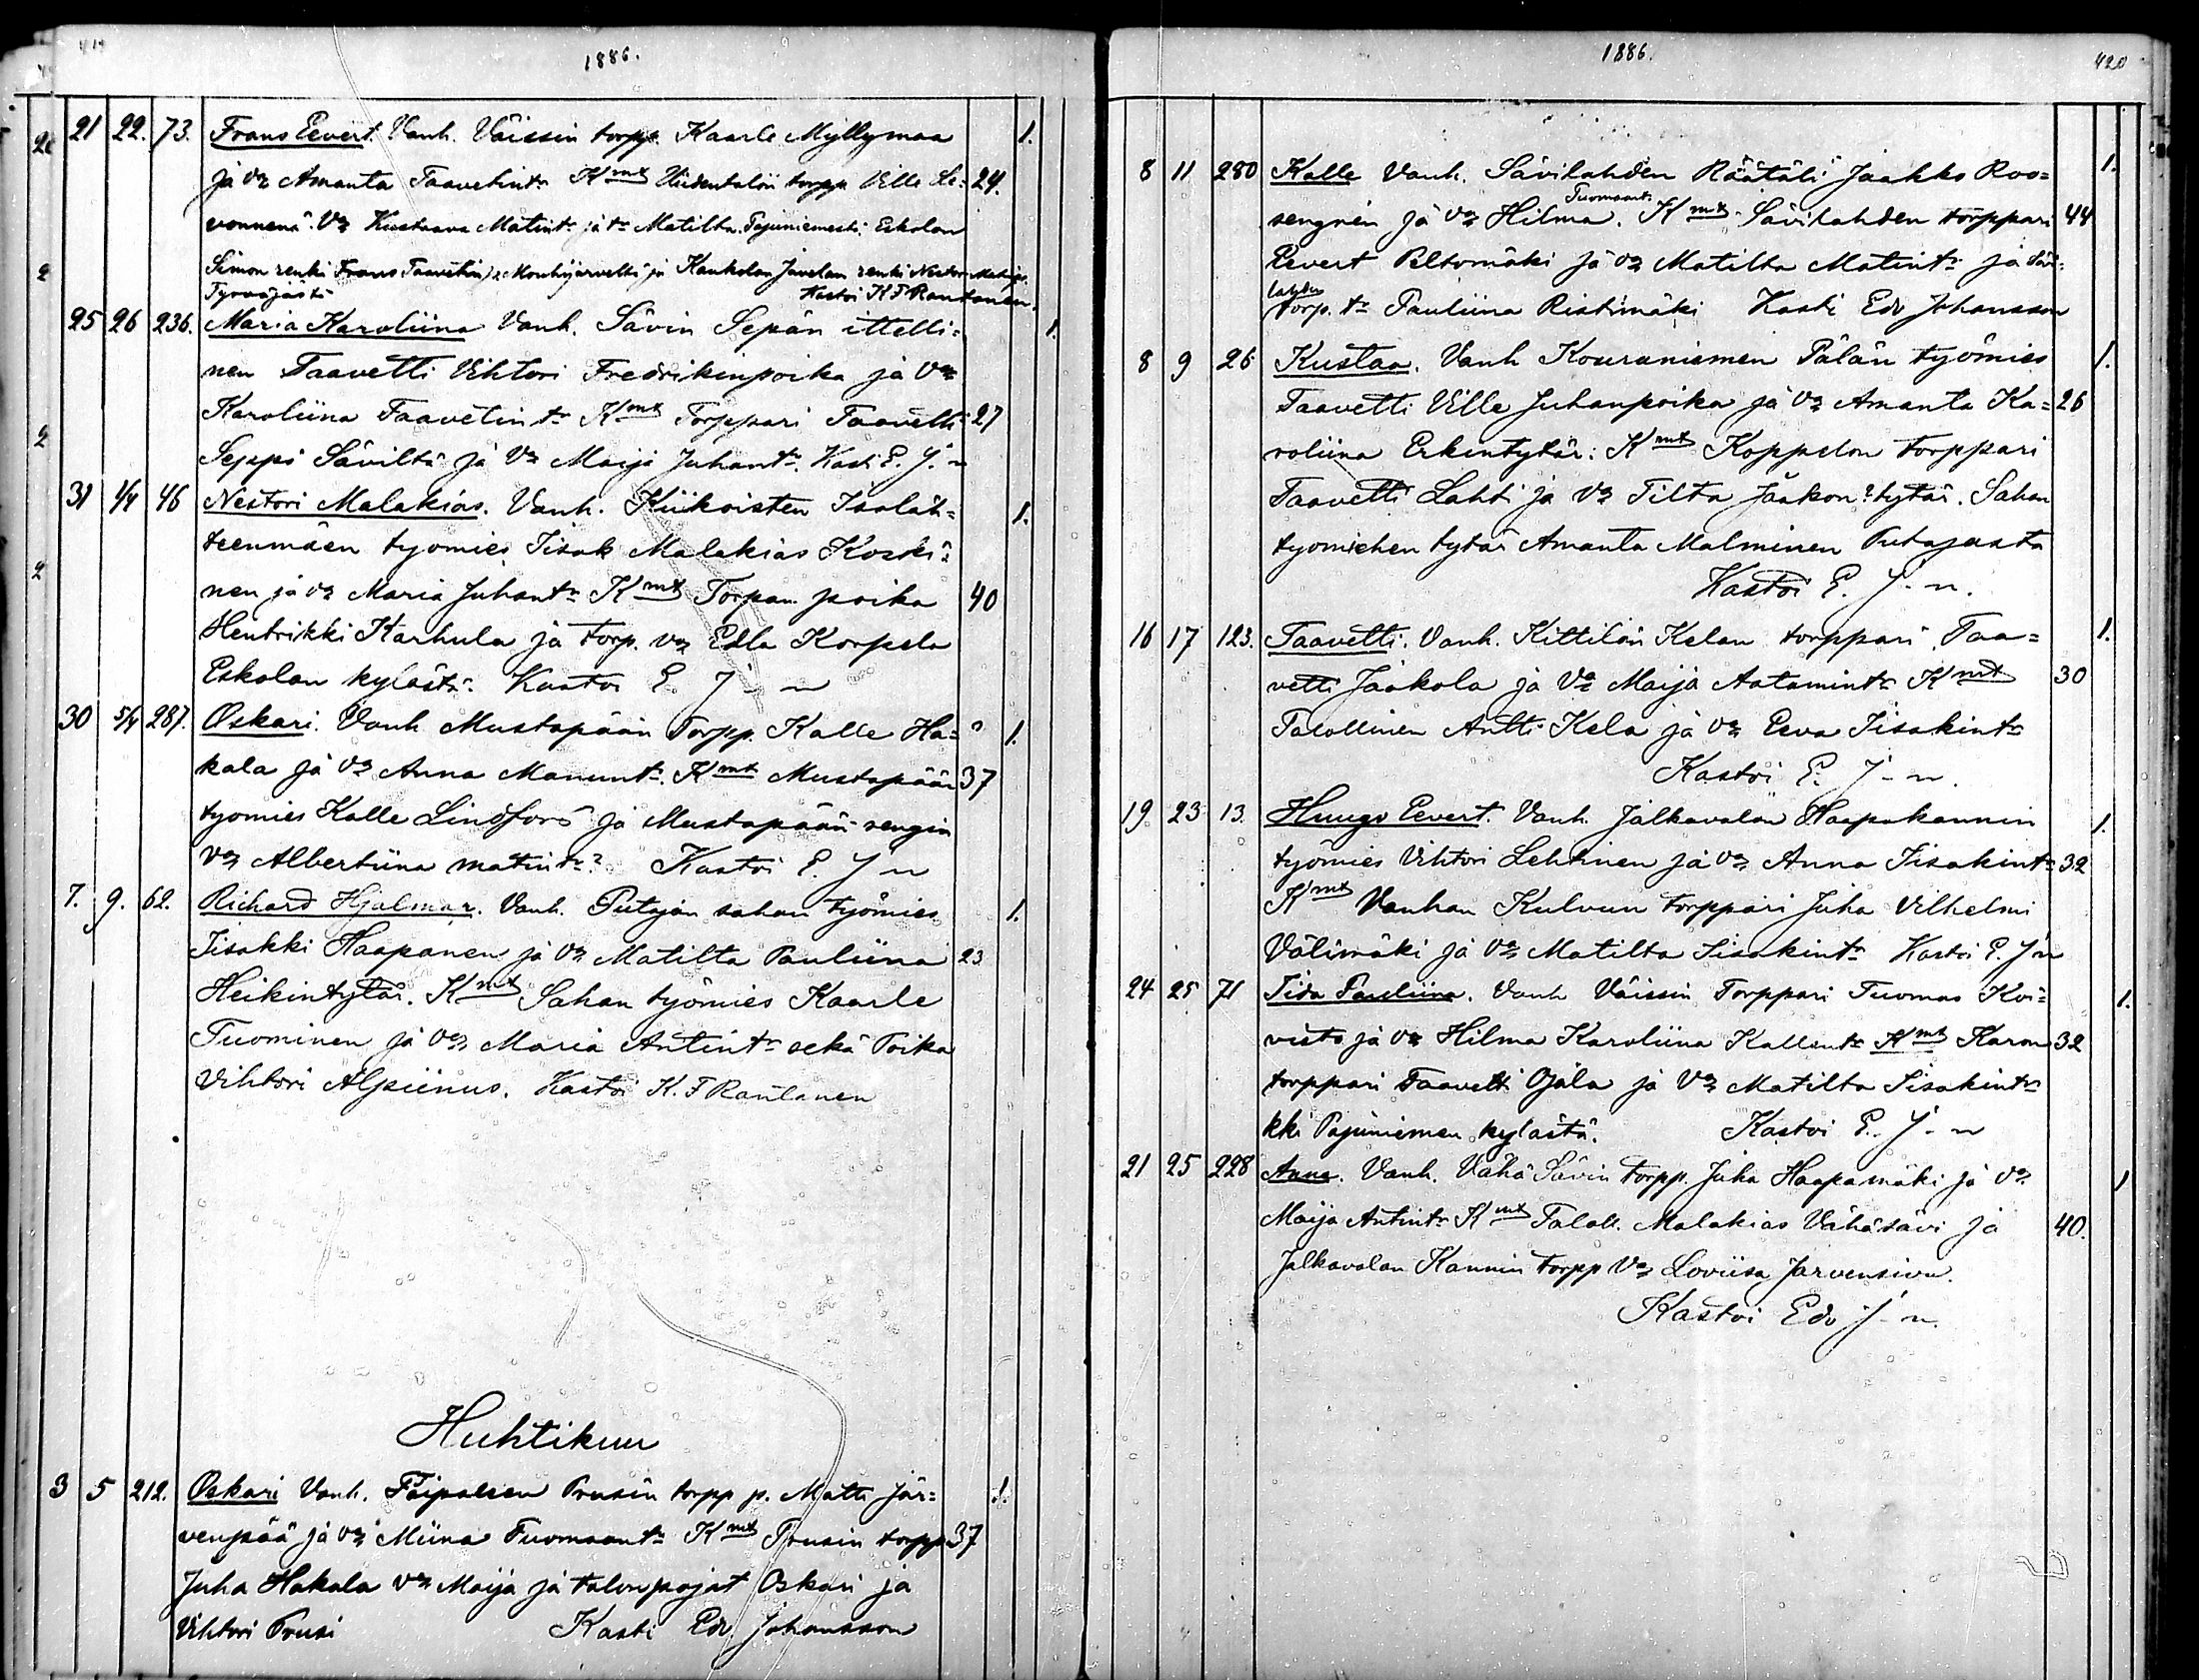 1886.
21 22. 73. Frans Eevert. Vanh. Väissin torpp. Kaarle Myllymaa 1.
ja va Amanta Taavetintr Kmt Uidentalon torpp. Ville Le= 24.
vonnenä. Va Kustaava Matintr ja tr Matilta Pajuniemestä. Eskolan
Simon renki Frans Taavetin Mouhijärveltä ja Kaukolan Javelan renki Nestor
Tyrväjästä Kastoi K F Rantanen.
25 26 236. Maria Karoliina Vanh. Sävin Sepän ittelli= 1.
nen Taavetti Vihtori Fredrikinpoika ja Va
Karoliina Taavetintr Kmt Torppari Taavetti 27
Seppi Säviltä ja Va Maija Juhantr. Kast. E. J-n
31 1/4 46 Nestori Malakias. Vanh. Kiikoisten Isoläh= 1.
teenmäen tyomies Iisak Malakias Koski=
nen ja va Maria Juhantr Kmt Torpan poika 40
Hentrikki Karhula ja torp. va Edla Korpela
Eskolan kylästä. Kastoi E. J-n
30 5/4 287. Oskari. Vanh. Mustapään Torpp. Kalle Ha= 1.
kala ja va Anna Manuntr. Kmt Mustapään 37
tyomies Kalle Lindfors ja Mustapään rengin
va Albertiina matintr. Kastoi E. J-n
7. 9. 62. Richard Hjalmar. Vanh. Putajan sahan työmies 1.
Iisakki Haapanen ja va Matilta Pauliina 23
Heikintytär. Kmt Sahan työmies Kaarle
Tuominen ja va Maria Antintr sekä Poika
Vihtori Alpiinus. Kastoi K. F Rantanen
Huhtikuu
3 5 212. Oskari Vanh. Taipaleen Prusin torpp p. Matti Jär= 1.
venpää ja va Miina Tuomaantr Kmt Prusin torpp 37
Juha Hakala va Maija ja talonpojat Oskari ja
Vihtori Prusi Kasti Edv Johansson
1886.
420
8 11 280 Kalle Vanh. Sävilahden Räätäli Jaakko Roo= 1.
sengren ja va Hilma Tuomaant. Kmt Sävilahden torppari 44
Eevert Peltomäki ja va Matilta Matintr ja Sävi=
lahden torp. tr Pauliina Ristimäki Kasti Edv Johansson
8 9 26 Kustaa. Vanh Kouraniemen Pälän työmies 1.
Taavetti Ville Juhanpoika ja va Amanta Ka= 26
roliina Erkintytär: Kmt Koppelon torppari
Taavetti Lahti ja va Tilta Jaakon tytär. Sahan
tyomiehen tytär Amanta Malminen Putajasta
Kastoi E. J-n.
16 17 123. Taavetti. Vanh. Kittilän Kelan torppari Taa= 1.
vetti Jaakola ja Va Maija Aatamintr Kmt 30
Talollinen Antti Kela ja va Eeva Iisakintr
Kastoi E. J-n.
19 23 13. Huugo Eevert. Vanh. Jalkavalan Haapakannin 1.
työmies Vihtori Lehtinen ja va Anna Iisakintr 32
Kmt Vanhan Kulvun torppari Juha Vilhelmi
Välimäki ja va Matilta Iisakintr Kastoi E. J-n
24 25 71 Iida Pauliina. Vanh Väissin Torppari Tuomas Koi= 1.
visto ja va Hilma Karoliina Kallentr Kmt Karom 32
torppari Taavetti Ojala ja Va Matilta Iisakintr
kki Pajuniemen kylästä. Kastoi E. J-n
21 25 228 Anna. Vanh. Vähä Sävin torpp. Juha Haapamäki ja va 1
Maija Antintr Kmt Taloll. Malakias Vähäsävi ja 40.
Jalkavalan Kannin torpp Va Loviisa Järvensivu.
Kastoi Edv J-n.